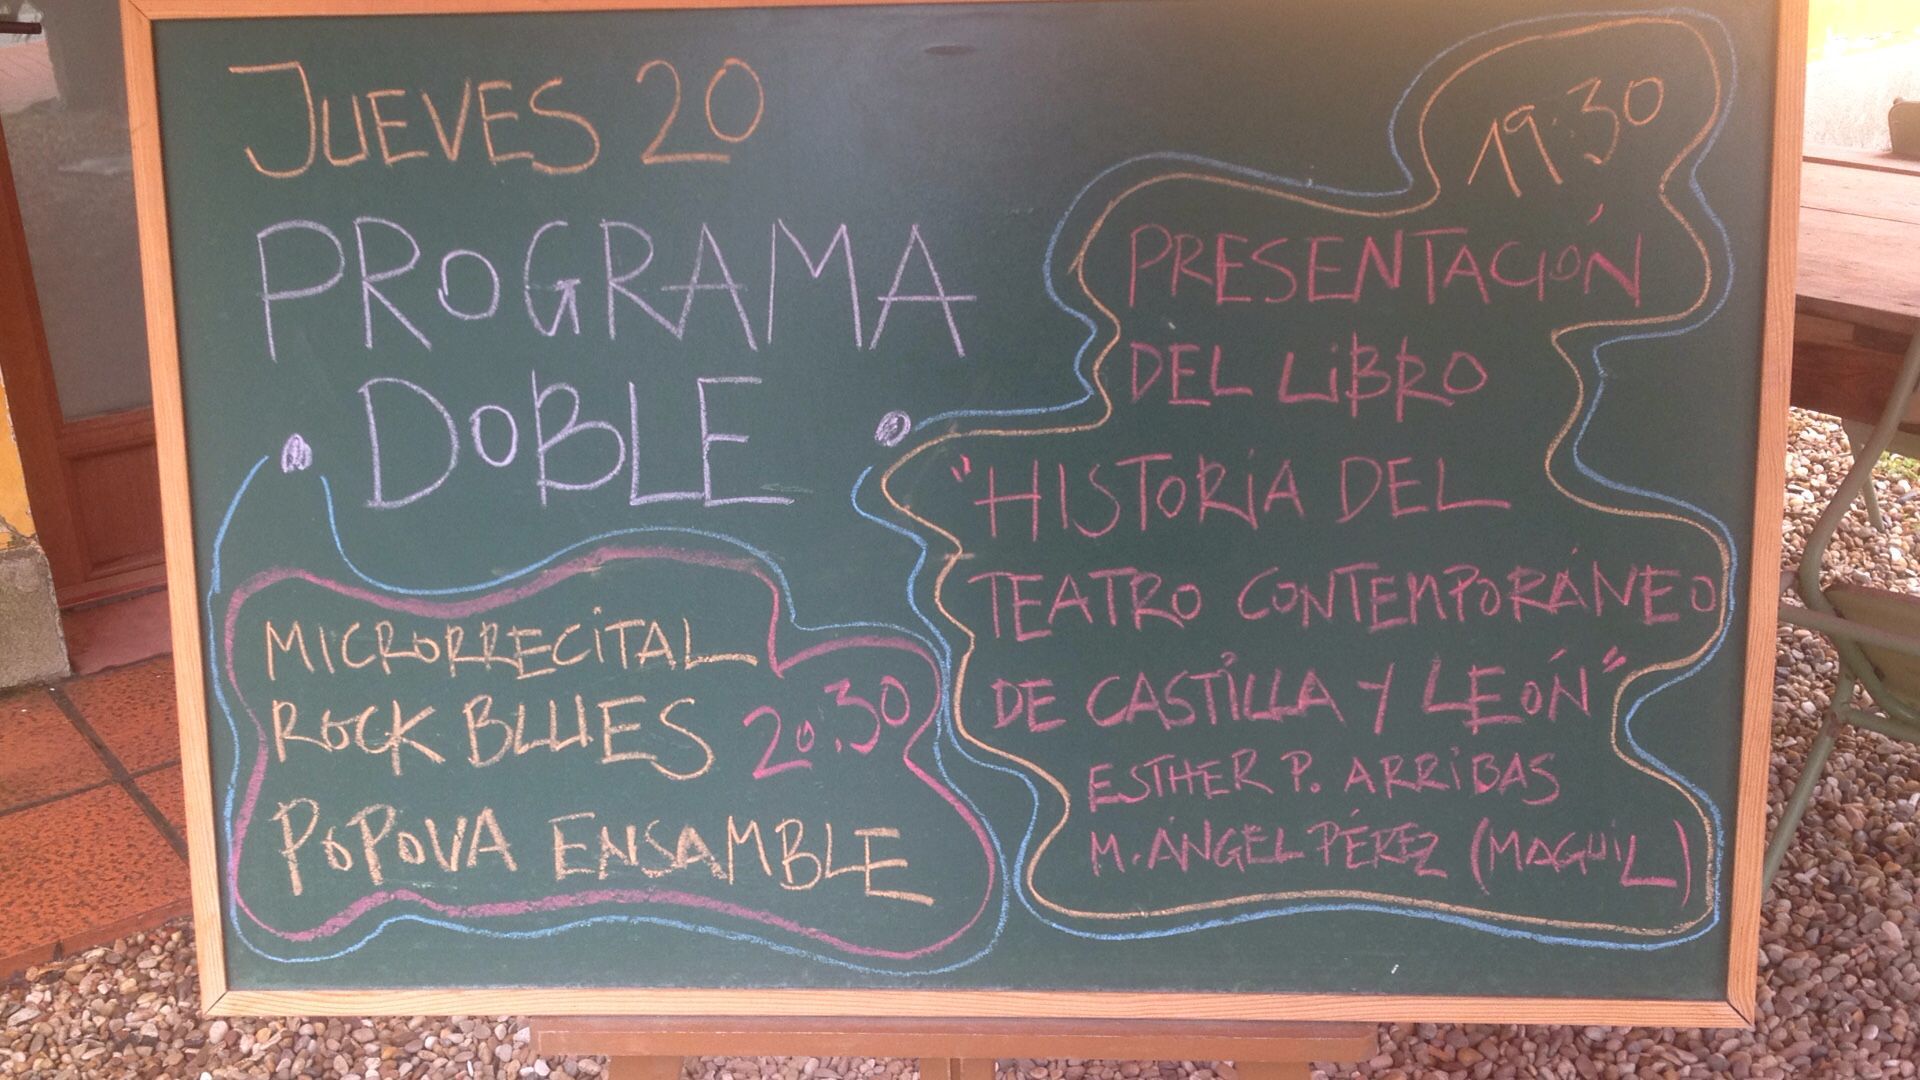 JUEVES 20
PROGRAMA
DOBLE
MICRORRECITAL
ROCK BLUES 20:30
POPOVA ENSAMBLE
19:30
PRESENTACIÓN
DEL LIBRO
"HISTORIA DEL
TEATRO CONTEMPORÁNEO
DE CASTILLA Y LEÓN"
ESTHER P. ARRIBAS
M. ÁNGEL PÉREZ (MAGUIL)